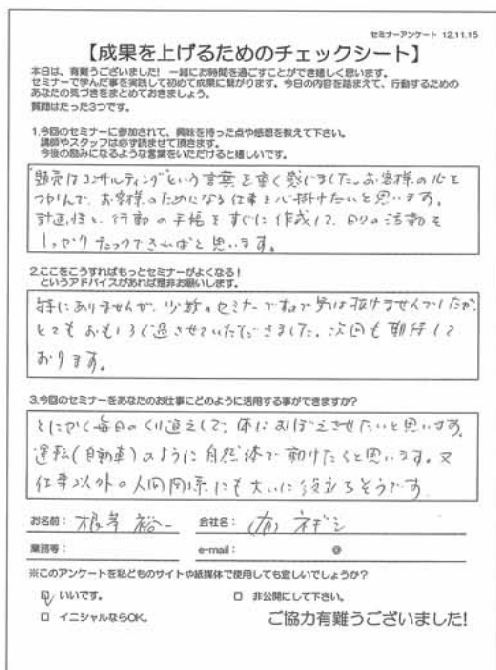 セミナーアンケート 12.11.15
【成果を上げるためのチェックシート】
本日は、有難うございました! 一緒にお時間を過ごすことができ嬉しく思います。
セミナーで学んだ事を実践して初めて成果に繋がります。今日の内容を踏まえて、行動するための
あなたの気づきをまとめておきましょう。
質問はたった3つです。
1.今回のセミナーに参加されて、興味を持った点や感想を教えて下さい。
講師やスタッフは必ず読ませて頂きます。
今後の励みになるような言葉をいただけると嬉しいです。
販売はコンサルティングという言葉を重く感じました。お客様の心を
つかんで、お客様のためになる仕事を心掛けたいと思います。
計画性と、行動の手帳をすぐに作成して、日々の活動を
しっかりチェックできればと思います。
2.ここをこうすればもっとセミナーがよくなる!
というアドバイスがあれば是非お願いします。
特にありませんが、少数のセミナーですので気は抜けませんでしたが、
とてもおもしろく過させていただきました。次回も期待して
おります。
3.今回のセミナーをあなたのお仕事にどのように活用する事ができますか?
とにかく毎日のくり返えしで、体におぼえさせたいと思います。
運転(自動車)のように自然体で動けたらと思います。又
仕事以外の人間関係にも大いに役立ちそうです
お名前: 根岸 裕一 会社名: (有) ネギシ
業務等: e-mail: @
※このアンケートを私どものサイトや紙媒体で使用しても宜しいでしょうか?
いいです。 □ 非公開にして下さい。
□ イニシャルならOK. ご協力有難うございました!